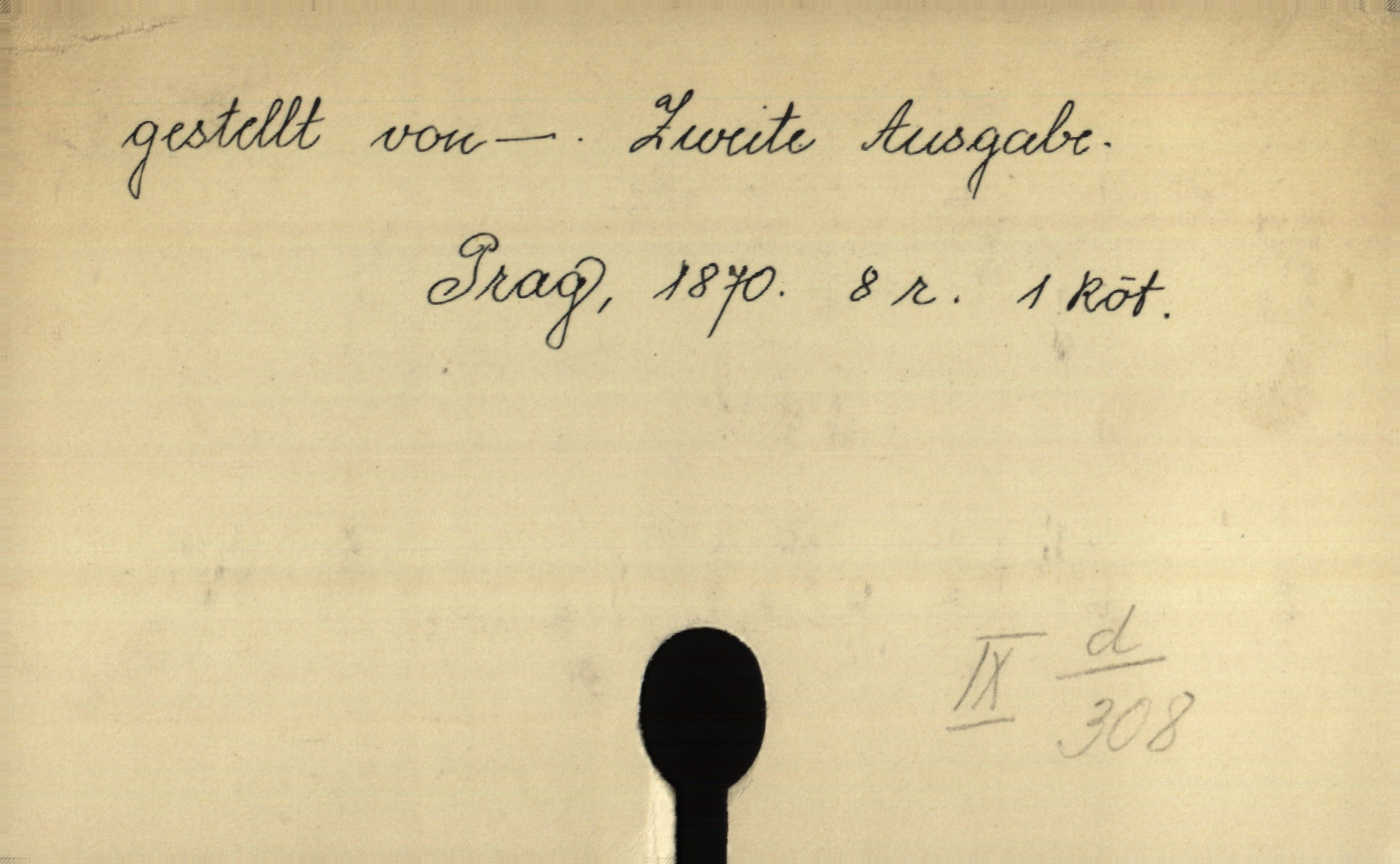 gestellt von —. Zweite Ausgabe.
Prag, 1870. 8 r. 1 köt.
IX d
308